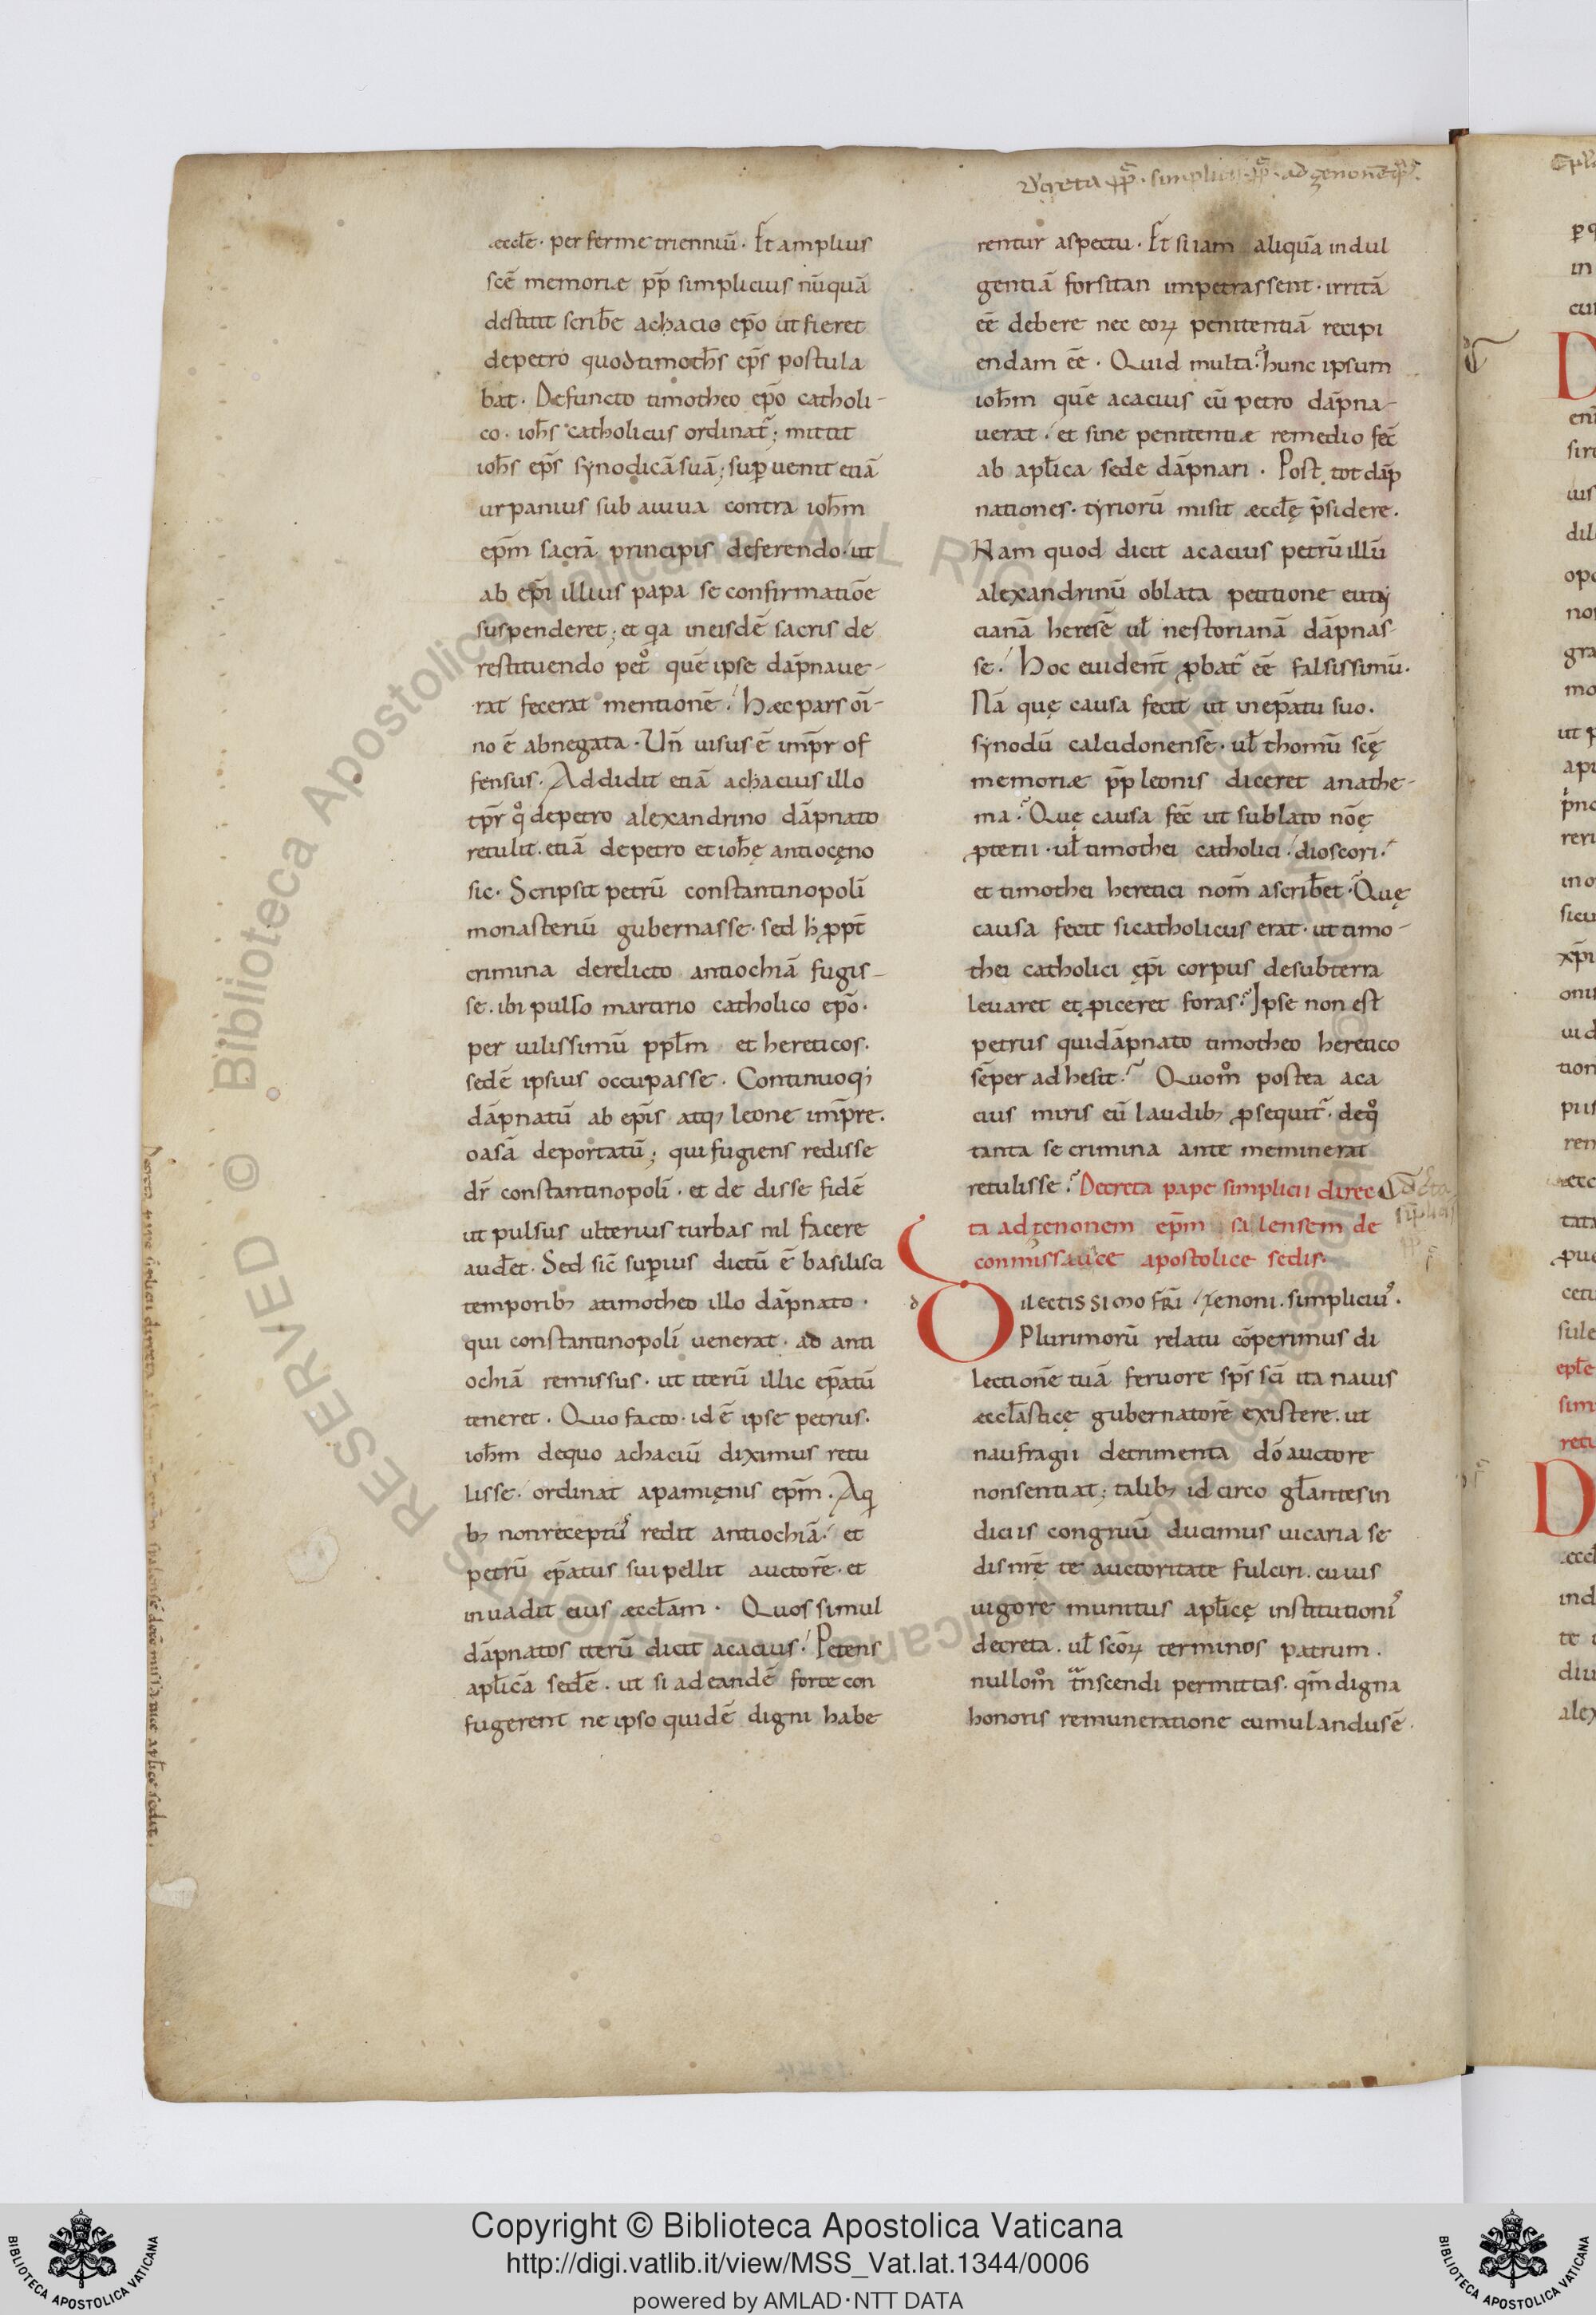 æccłe · per ferme trienniū · Et amplius
scē memoriæ pp̄ simplicius nūquā
destitit scriƀe achacio ep̄o ut fieret
depetro quod timoth̄s ep̄s postula
bat · Defuncto timotheo ep̄o catholi-
co · ioħs catholicus ordinat̄ ; mittit
ioħs ep̄s synodicā suā ; suꝑuenit etiā
urpanius sub aiuua contra ioħm
ep̄m sacrā principis deferendo · ut
ab ep̄i illius papa se confirmatiōe
suspenderet ; et qa in eisdē sacris de
restituendo peto quē ipse dāpnaue-
rat fecerat mentionē · Hæc pars oī-
no ē abnegata · Un̄ uisus ē imp̄r of
fensus · Addidit etiā achacius illo
tp̄r qo depetro alexandrino dāpnato
retulit · etiā depetro et ioħę antiocęno
sic · Scripsit petrū constantinopolī
monasteriū gubernasse · sed h ꝓpt̄
crimina derelicto antiochiā fugis-
se · ibi pulso martirio catholico ep̄o ·
per uilissimū ppłm et hereticos ·
sedē ipsius occupasse · Continuoq;
dāpnatū ab ep̄is atq; leone imp̄re ·
oasā deportatū ; qui fugiens redisse
dr̄ constantinopolī · et de disse fidē
ut pulsus ulterius turbas nil facere
audet · Sed sic̄ suꝑius dictū ē basilisci
temporib; atimotheo illo dāpnato ·
qui constantinopolī uenerat · ad anti
ochiā remissus · ut iterū illic ep̄atū
teneret · Quo facto · idē ipse petrus ·
ioħm dequo achaciū diximus retu
lisse · ordinat apamięnis ep̄m · Aq
b; non receptus redit antiochiā · et
petrū ep̄atus sui pellit auctorē · et
inuadit eius æccłam · Quos simul
dāpnatos iterū dicit acacius · Petens
apłicā sedē · ut si ad eandē forte con
fugerent ne ipso quidē digni habe
rentur aspectu · Et si iam aliquā indul
gentiā forsitan impetrassent · irritā
eē debere nec eoꝝ penitentiā recipi
endam eē · Quid multa? hunc ipsum
ioħm quē acacius cū petro dāpna-
uerat · et sine penitentiæ remedio fec̄
ab apłica sede dāpnari · Post tot dāp
nationes · tyriorū misit æccłę p̄sidere ·
Nam quod dicit acacius petrū illū
alexandrinū oblata petitione euty
cianā heresē uł nestorianā dāpnas-
se · Hoc euident̄ ꝓbat̄ eē falsissimū ·
Nā quę causa fecit ut in ep̄atu suo ·
synodū calcidonensē · uł thomū scę̄
memoriæ pp̄ leonis diceret anathe-
ma? Quę causa fec̄ ut sublato nōę
ꝓterii · uł timothei catholici · dioscori ·
et timothei heretici nom̄ ascriƀet · Quę
causa fecit si catholicus erat · ut timo-
thei catholici ęp̄i corpus desubterra
leuaret et ꝓiceret foras? Ipse non est
petrus qui dāpnato timotheo heretico
sēper adhesit? Quom̊ postea aca
cius miris cū laudib; ꝓsequit̄ · deqo
tanta se crimina ante meminerat
retulisse? Decreta pape simplicii direc
ta ad zenonem ep̄m spalensem de
conmissa uice apostolice sedis ·
Dilectissimo fr̄i · zenoni · simplicius ·
Plurimorū relatu cōperimus di
lectionē tuā feruore sp̄s sc̄i ita nauis
æccłasticę gubernatorē existere · ut
naufragii detrimenta dō auctore
non sentiat ; talib; idcirco głantes in
diciis congruū ducimus uicaria se
dis nr̄ę te auctoritate fulciri · cuius
uigore munitus apłicę institutionis
decreta · uł scōꝝ terminos patrum ·
nullom̊ tr̄nscendi permittas · qm̄ digna
honoris remuneratione cumulandus ē ·
Copyright © Biblioteca Apostolica Vaticana
http://digi.vatlib.it/view/MSS_Vat.lat.1344/0006
powered by AMLAD·NTT DATA
BIBLIOTECA APOSTOLICA VATICANA
BIBLIOTECA APOSTOLICA VATICANA